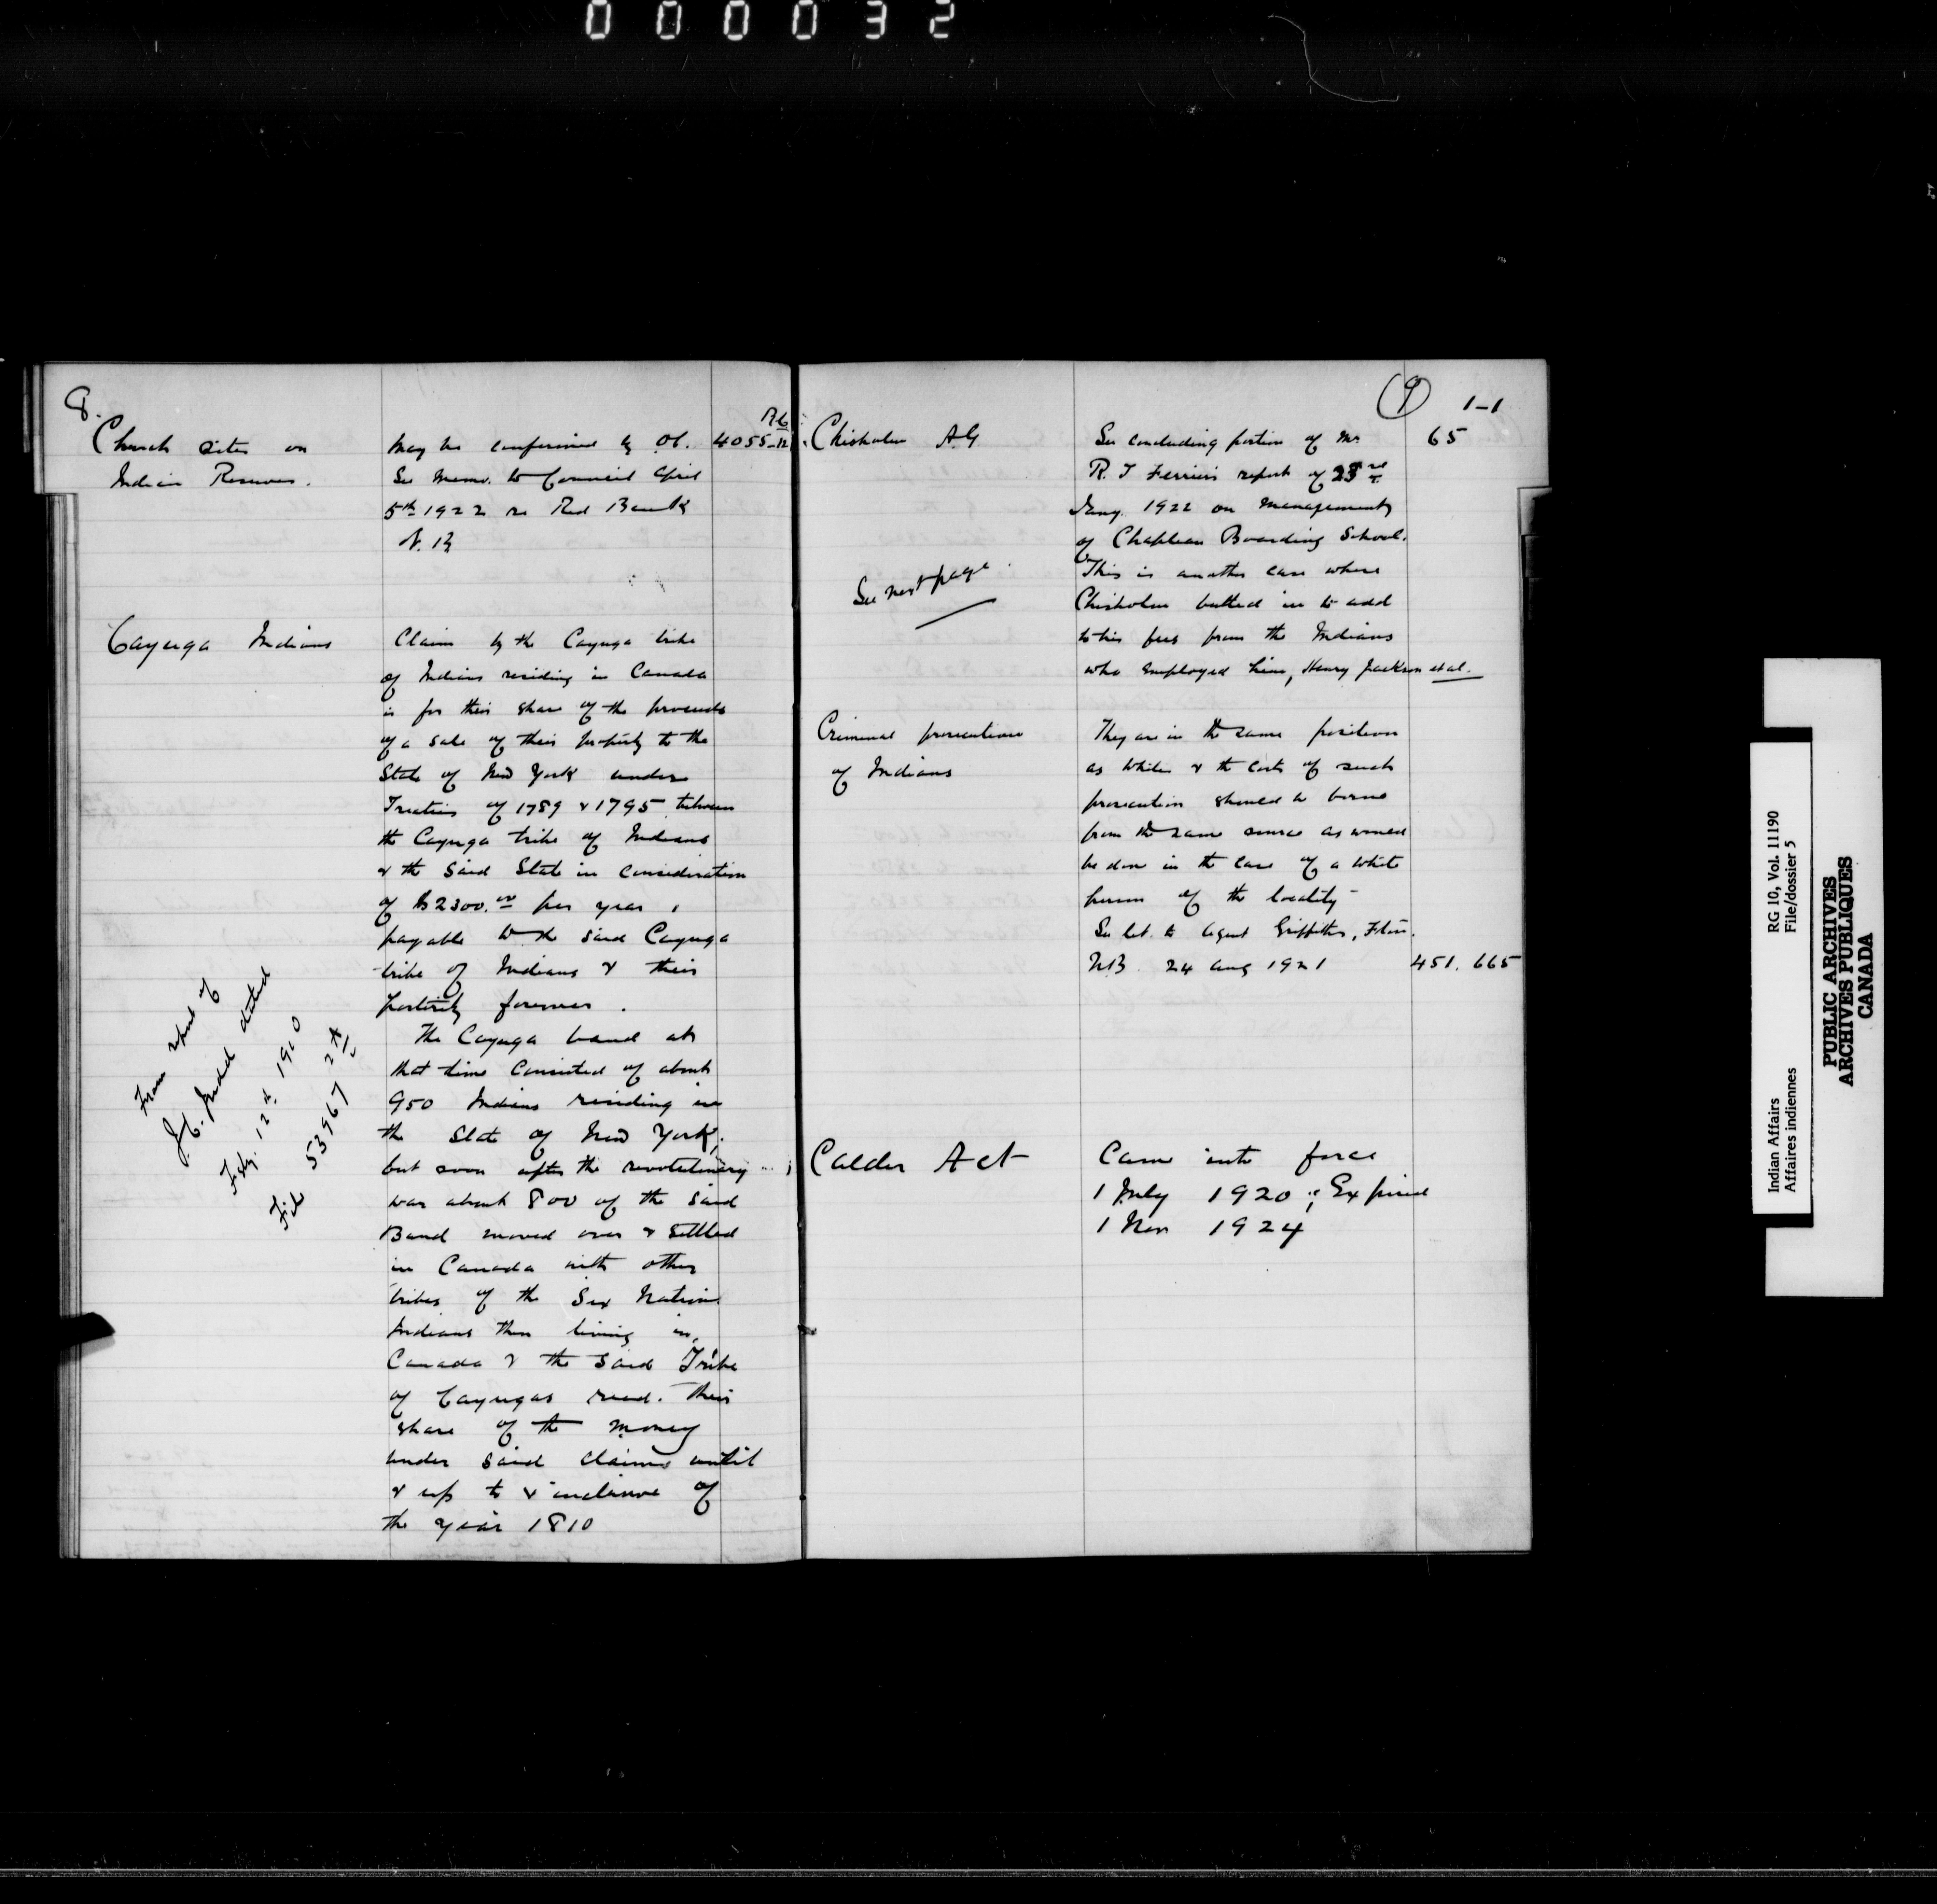 000032
8.
Church sites on
Indian Reserves.
May be confirmed by O.C.
See Memo. to Council April
5th 1922 re Red Bank
N.B
4055-12
Cayuga Indians
Claim by the Cayuga tribe
of Indians residing in Canada
is for their share of the proceeds
of a sale of their property to the
State of New York under
Treaties of 1789 & 1795 between
the Cayuga tribe of Indians
& the said State in consideration
of $2300.00 per year,
payable to the said Cayuga
tribe of Indians & their
posterity forever.
The Cayuga band at
that time consisted of about
950 Indians residing in
the State of New York,
but soon after the revolutionary
war about 800 of the said
Band moved over & settled
in Canada with other
tribes of the Six Nation
Indians then living in
Canada & the said Tribe
of Cayugas recd. their
share of the money
under said claims until
& up to & inclusive of
the year 1810
From report of
dated
Feby. 12th 1900
File 53967
(9) 1-1
Chisholm A.G.
See next page.
See concluding portion of Mr
R. T Ferrier's report of 23rd
Jany. 1922 on management
of Chapleau Boarding School.
This is another case where
Chisholm butted in to add
to his fees from the Indians
who employed him, Henry Jackson et al.
65
Criminal prosecution
of Indians
They are in the same position
as Whites & the costs of such
prosecution should be borne
from the same source as would
be done in the case of a white
person of the locality
See let. to Agent Griffiths,
N.B. 24 Aug 1921
451.665
Calder Act
Came into force
1 July 1920; Expired
1 Nov 1924
Indian Affairs RG 10, Vol. 11190
Affaires indiennes File/dossier 5
PUBLIC ARCHIVES
ARCHIVES PUBLIQUES
CANADA